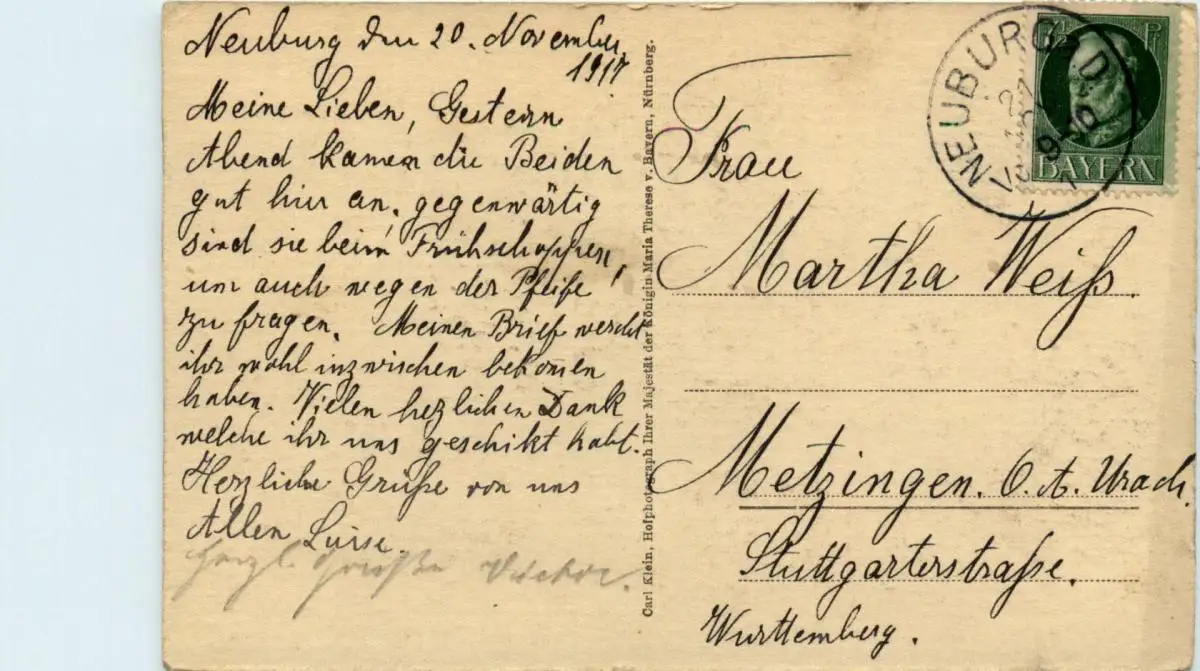 Neuburg den 20. November
1917
Meine Lieben, Gestern
Abend kamen die Beiden
gut hier an, gegenwärtig
sind sie beim Frühschoppen,
um auch wegen der Pfeife
zu fragen. Meinen Brief werdet
ihr wohl inzwischen bekomen
haben. Vielen hezlichen Dank
welche ihr uns geschikt habt.
Herzliche Grüße von uns
Allen Luise.
Herzl. Grüße
Carl Klein, Hofphotograph Ihrer Majestät der Königin Maria Therese v. Bayern, Nürnberg.
NEUBURG A.D.
7½ Pf
BAYERN
Frau
Martha Weiß.
Metzingen. O. A. Urach.
Stuttgarterstraße.
Württemberg.